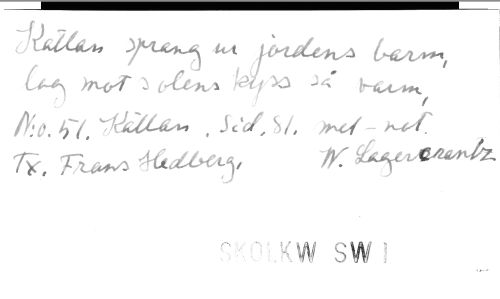 Källan sprang ur jordens barm,
log mot solens kyss så varm,
N:o. 51. Källan. Sid. 81. mel-not.
Tx. Frans Hedberg. W. Lagercrantz
SKOLKW SW 1